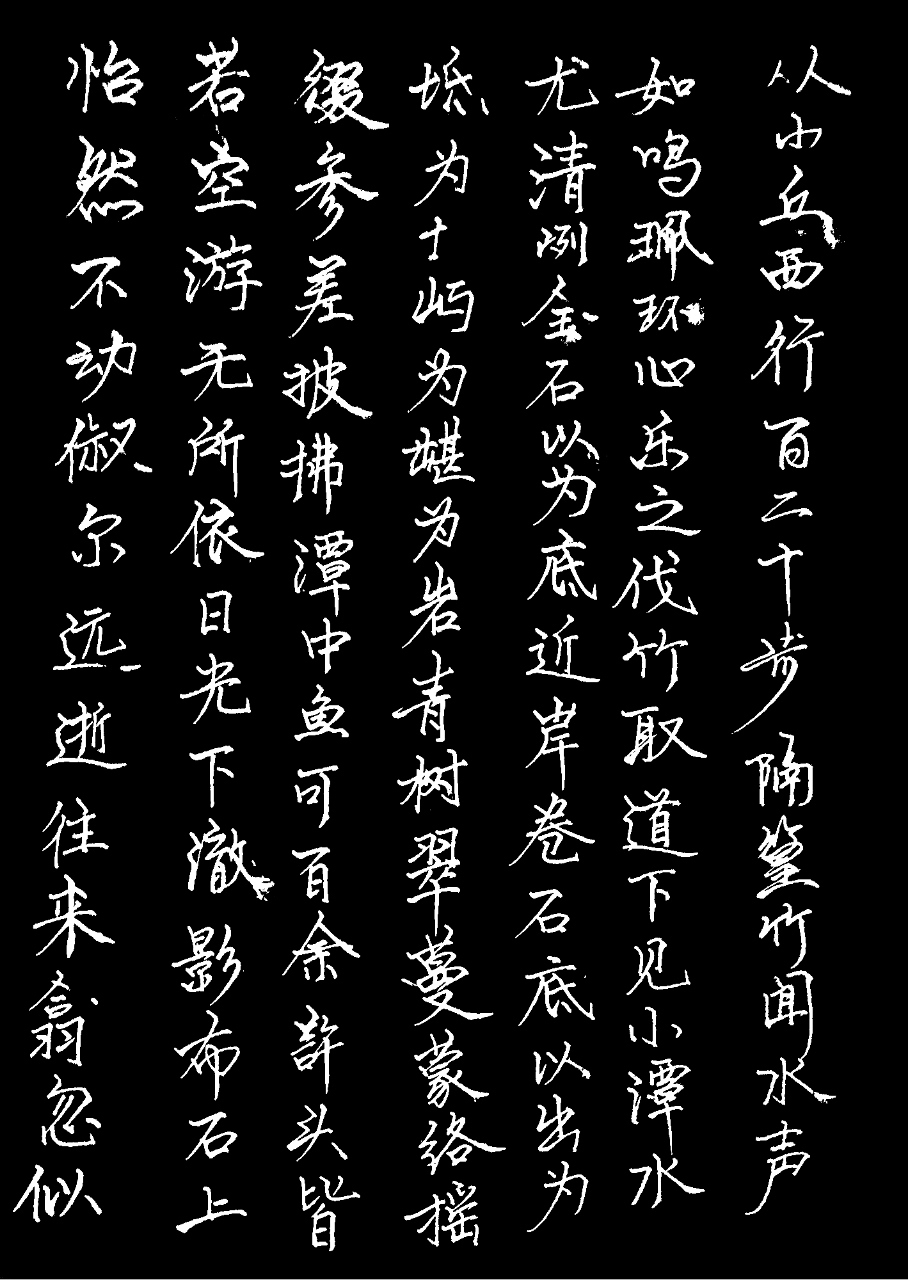 从小丘西行百二十步隔篁竹闻水声
如鸣珮环心乐之伐竹取道下见小潭水
尤清洌金石以为底近岸卷石底以出为
坻为十屿为嵁为岩青树翠蔓蒙络摇
缀参差披拂潭中鱼可百余许头皆
若空游无所依日光下澈影布石上
怡然不动俶尔远逝往来翕忽似